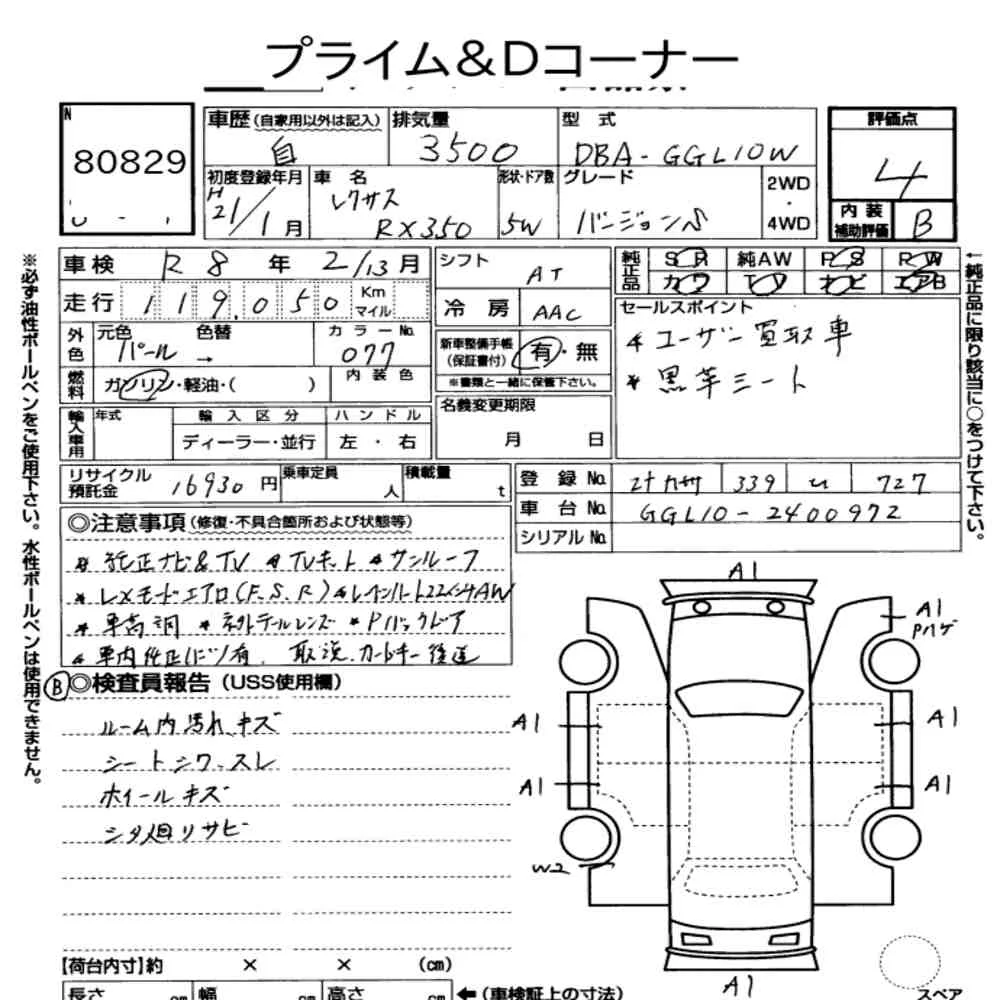 プライム&Dコーナー
N
80829
車歴(自家用以外は記入) 自
排気量 3500
型式 DBA-GGL10W
評価点 4
内装補助評価 B
初度登録年月 H21/1月
車名 レクサス RX350
形状・ドア数 5W
グレード バージョンS
2WD・4WD
車検 R8年2/13月
走行 119,050 Km マイル
シフト AT
冷房 AAC
純正品 SR 純AW PS PW
カワ TV ナビ エアB
外色 元色 パール 色替 →
カラーNo. 077
燃料 ガソリン・軽油・( )
内装色
新車整備手帳(保証書付) 有・無
※書類と一緒に保管下さい。
セールスポイント
* ユーザー買取車
* 黒革シート
輸入車用 年式 輸入区分 ハンドル
ディーラー・並行 左・右
名義変更期限
月 日
リサイクル預託金 16930円
乗車定員 人
積載量 t
登録No. 339 727
車台No. GGL10-2400972
シリアルNo.
◎注意事項(修復・不具合箇所および状態等)
* 純正ナビ&TV * TVキット * サンルーフ
* LXモードエアロ(F.S.R) * レイバルト22インチAW
* 車高調 * 社外テールレンズ * Pバックドア
* 車内純正パーツ有. 取説.カードキー後送
Ⓑ◎検査員報告(USS使用欄)
ルーム内汚れ、キズ
シートシワ、スレ
ホイールキズ
シタ廻リサビ
A1
A1
Pハゲ
A1
A1
A1
A1
W2
A1
スペア
【荷台内寸】約 × × (cm)
長さ cm 幅 cm 高さ cm ←(車検証上の寸法)
※必ず油性ボールペンをご使用下さい。水性ボールペンは使用できません。
←純正品に限り該当に○をつけて下さい。